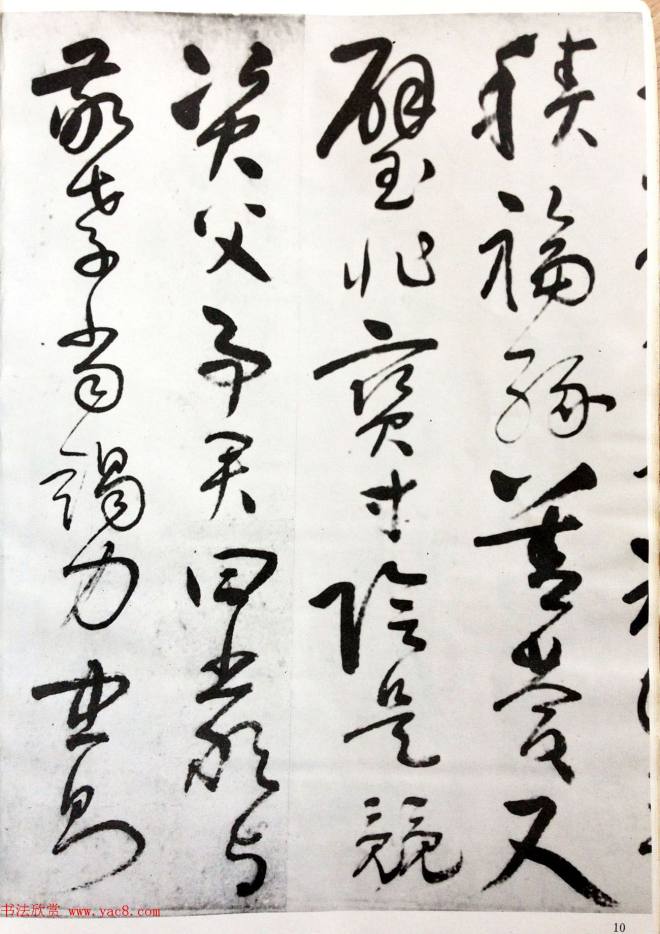 積福緣善慶尺
璧非寶寸陰是競
資父事君曰嚴與
敬孝當竭力忠則
书法欣赏 www.yac8.com
10